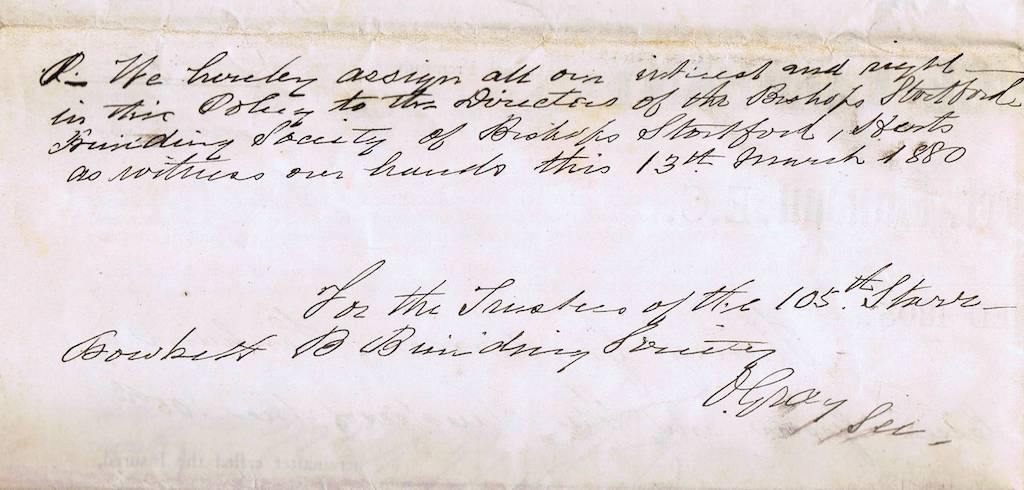 We hereby assign all our interest and right
in this Policy to the Directors of the Bishops Stortford
Building Society of Bishops Stortford, Herts
as witness our hands this 13th March 1880
For the Trustees of the 105th Starr-
Bowkett B Building Society
Gray
Sec
hereinafter called the Insured,